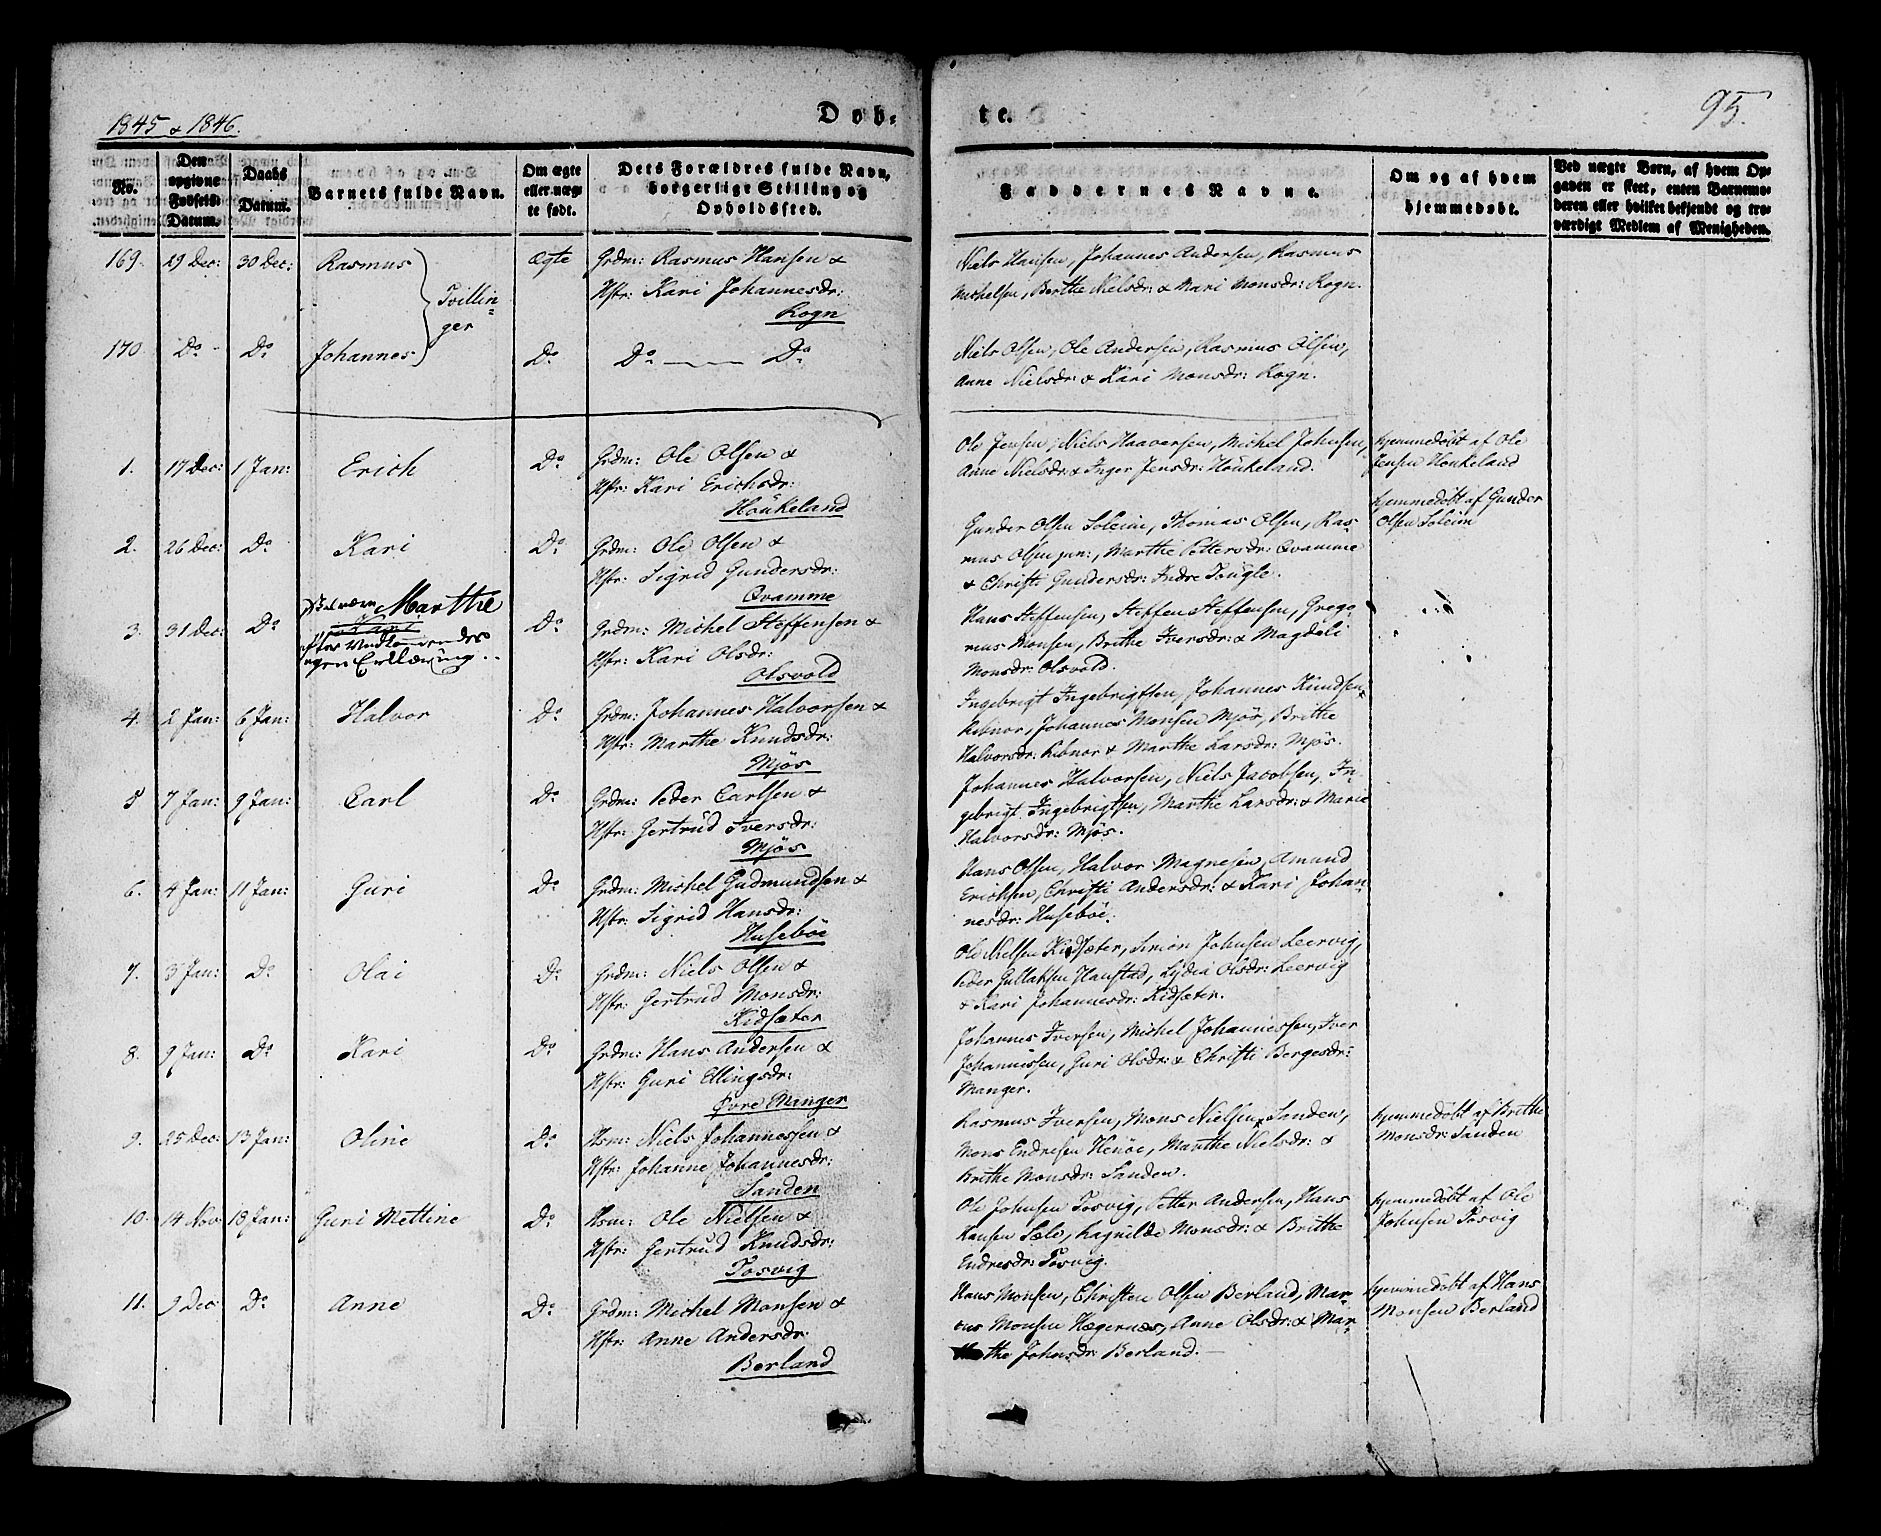 1845 & 1846.
Døb-
te.
95.
No.
Den opgivne Fødsels-Datum.
Daabs Datum.
Barnets fulde Navn.
Om ægte eller uægte født.
Dets Forældres fulde Navn, borgerlige Stilling og Opholdssted.
Faddernes Navne.
Om og af hvem hjemmedøbt.
Ved uægte Børn, af hvem Opgaven er skeet, enten Barnemoderen eller hvilket bekjendt og troværdigt Medlem af Menigheden.
169. 29 Dec: 30 Dec: Rasmus Ægte Grdm: Rasmus Hansen &
Hstr: Kari Johannesdr:
Rogn
Tvillin-
ger
Niels Hansen, Johannes Andersen, Rasmus
Michelsen, Berthe Nielsdr: & Mari Monsdr: Rogn.
170. Do Do Johannes Do Do — Do
Niels Olsen, Ole Andersen, Rasmus Olsen,
Anne Nielsdr: & Kari Monsdr: Rogn.
1. 17 Dec: 1 Jan: Erich Do Grdm: Ole Olsen &
Hstr: Kari Erichsdr:
Höukeland
Ole Jensen, Niels Haaversen, Michel Johnsen,
Anne Nielsdr: & Inger Jensdr: Höukeland.
hjemmedøbt af Ole
Jensen Houkeland
2. 26 Dec: Do Kari Do Grdm: Ole Olsen &
Hstr: Sigrid Gundersdr:
Qvamme
Gunder Olsen Soleim, Thomas Olsen, Ras-
mus Olsen jun:, Marthe Pettersdr: Qvamme
& Christi Gundersdr: Indre
hjemmedøbt af Gunder
Olsen Soleim
3. 31 Dec: Do Marthe
Kari
Do Grdm: Michel Steffensen &
Hstr: Kari Olsdr:
Olsvold
Hans Steffensen, Steffen Steffensen, Grego-
rius Monsen, Brithe Iversdr: & Magdeli
Monsdr: Olsvold.
4. 2 Jan: 6 Jan: Halvor Do Grdm: Johannes Halvorsen &
Hstr: Marthe Knudsdr:
Mjös
Ingebrigt Ingebrigtsen, Johannes Knudsen
Johannes Monsen Mjös, Brithe
Halvorsdr: & Marthe Larsdr: Mjös.
5 7 Jan: 9 Jan: Carl Do Grdm: Peder Carlsen &
Hstr: Gertrud Iversdr:
Mjös
Johannes Halvorsen, Niels Jacobsen, In-
gebrigt Ingebrigtsen, Marthe Larsdr: & Marie
Halvorsdr: Mjös.
6. 4 Jan: 11 Jan: Guri Do Grdm: Michel Gudmundsen &
Hstr: Sigrid Hansdr:
Huseböe
Hans Olsen, Halvor Magnesen, Amund
Erichsen, Christi Andersdr: & Kari Johan-
nesdr: Huseböe.
7. 5 Jan: Do Olai Do Grdm: Niels Olsen &
Hstr: Gertrud Monsdr:
Kidsæter
Ole Nielsen Kidsæter, Simon Johnsen Leervig,
Peder Gullaksen Haustad, Lydia Olsdr: Leervig
& Kari Johannesdr: Kidsæter.
8. 9 Jan: Do Kari Do Grdm: Hans Andersen &
Hstr: Guri Ellingsdr:
Øvre Manger
Johannes Iversen, Michel Johannessen, Iver
Johannessen, Guri Olsdr: & Christi Bergesdr:
Manger.
9. 25 Dec: 13 Jan: Oline Do Hsm: Niels Johannessen &
Hstr: Johanne Johannesdr:
Sanden
Rasmus Iversen, Mons Nielsen Sanden,
Mons Endresen Henöe, Marthe Nielsdr: &
Brithe Monsdr: Sanden.
hjemmedøbt af Brithe
Monsdr: Sanden
10. 14 Nov 18 Jan: Guri Mettine Do Hsm: Ole Nielsen &
Hstr: Gertrud Knudsdr:
Tosvig
Ole Johnsen Tosvig, Petter Andersen, Hans
Hansen Sæle, Ragnilde Monsdr: & Brithe
Endresdr: Tosvig.
hjemmedøbt af Ole
Johnsen Tosvig
11. 9 Dec Do Anne Do Grdm: Michel Monsen &
Hstr: Anne Andersdr:
Berland
Hans Monsen, Christen Olsen Berland, Mar-
cus Monsen Hægernes, Anne Olsdr: & Mar-
the Johnsdr: Berland.
hjemmedøbt af Hans
Monsen Berland